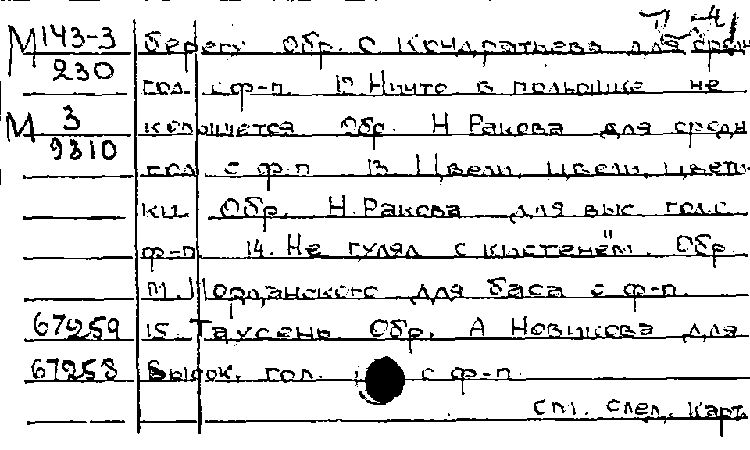 М 143-3 берегу Обр. С Кондратьева для средн
230 гол. с ф-п. 12. Ничто в полюшке не
М 3 колышется Обр. Н Ракова для средн
9310 гол с ф-п 13. Цвели, цвели цвети-
ки Обр. Н. Ракова для выс. гол. с
ф-п. 14. Не гулял с кистенём. Обр
М. Иорданского для баса с ф-п.
67259 15. Таусень Обр. А Новикова для
67258 высок. гол. с ф-п.
см. след. карт.